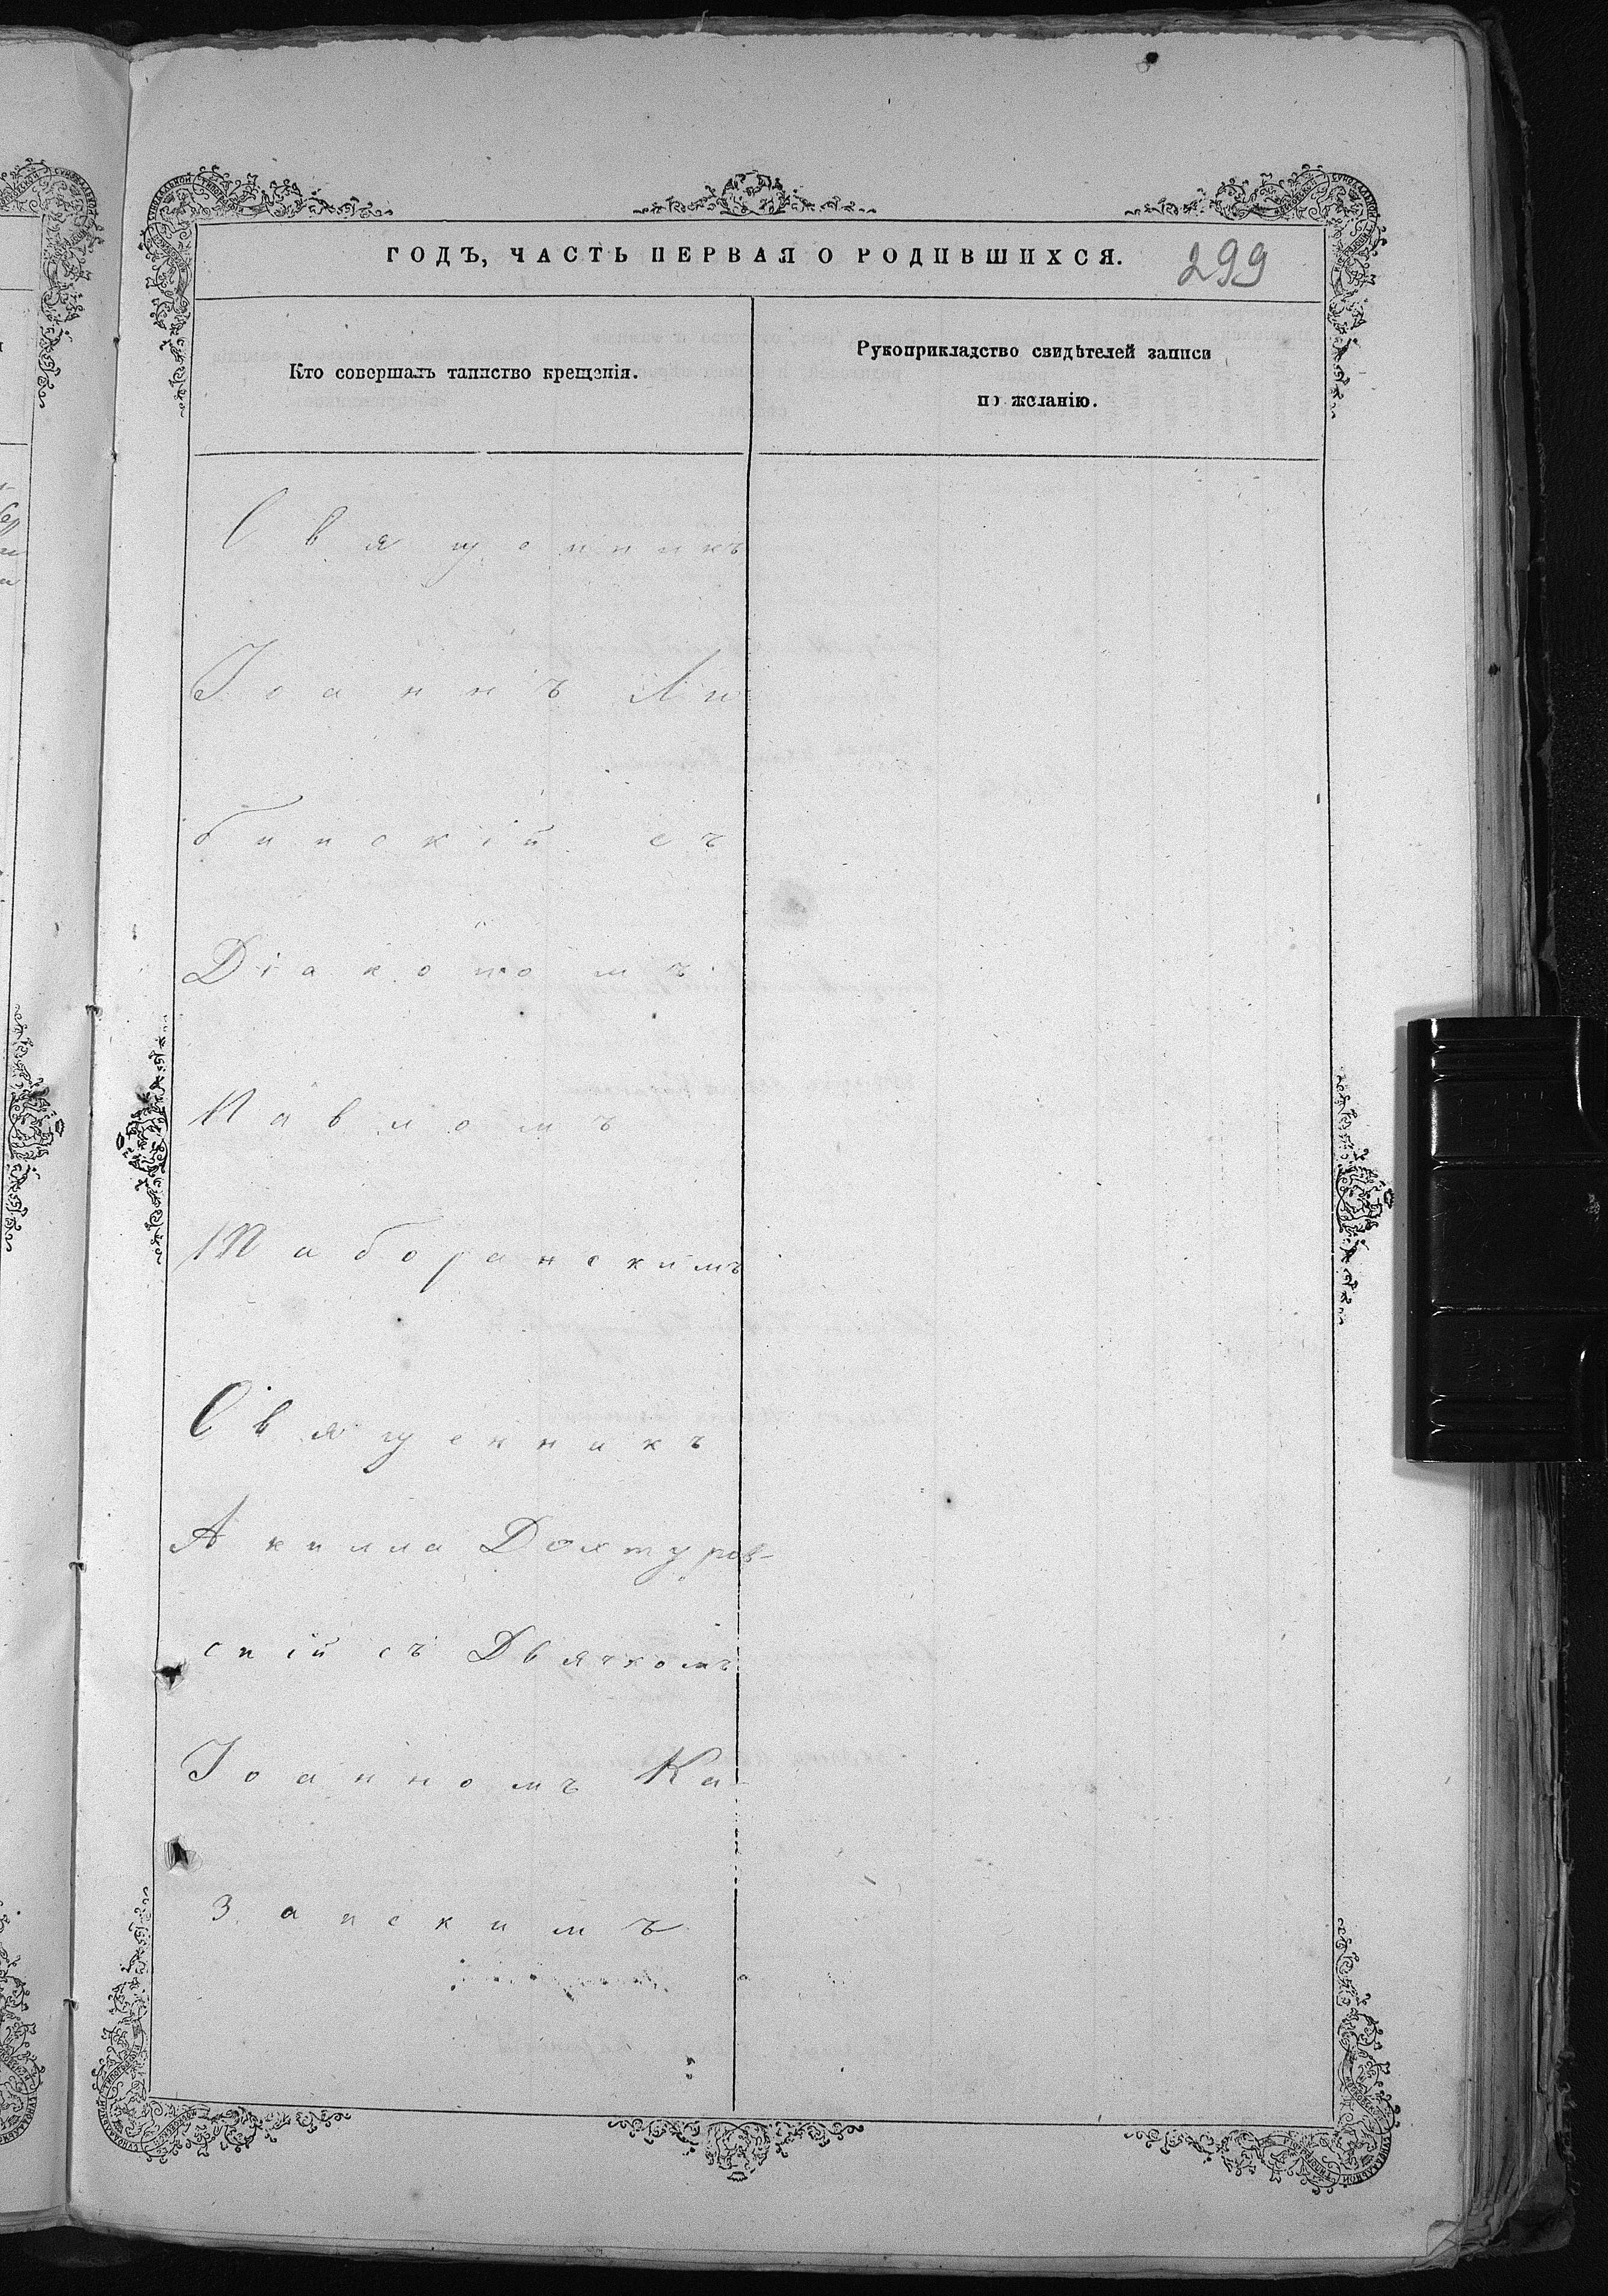 ГОДЪ, ЧАСТЬ ПЕРВАЯ О РОДИВШИХСЯ.
299
Кто совершалъ таинство крещенія.
Рукоприкладство свидѣтелей записи
по желанію.
Священникъ
Іоаннъ Ли
бинскій съ
Діакономъ
Павломъ
Таборанскимъ
Священникъ
Акилла Дохтуров-
скій съ Дьячкомъ
Іоанномъ Ка-
занскимъ